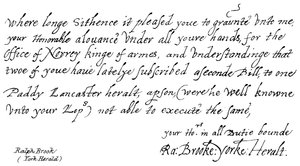 where longe Sithence it pleased youe to graunte unto me
your Honorable alowance under all youre hands, for the
office of Norrey kinge of armes, and understandinge that
twoe of youe haue latelye subscribed a seconde Bill, to one
Paddy Lancaster heralt, a pson (were he well knowne
unto your Lops) not able to execute the same,
your Hos. in all dutie bounde
Ra: Brooke: Yorke Heralt.
Ralph Brook
(York Herald)